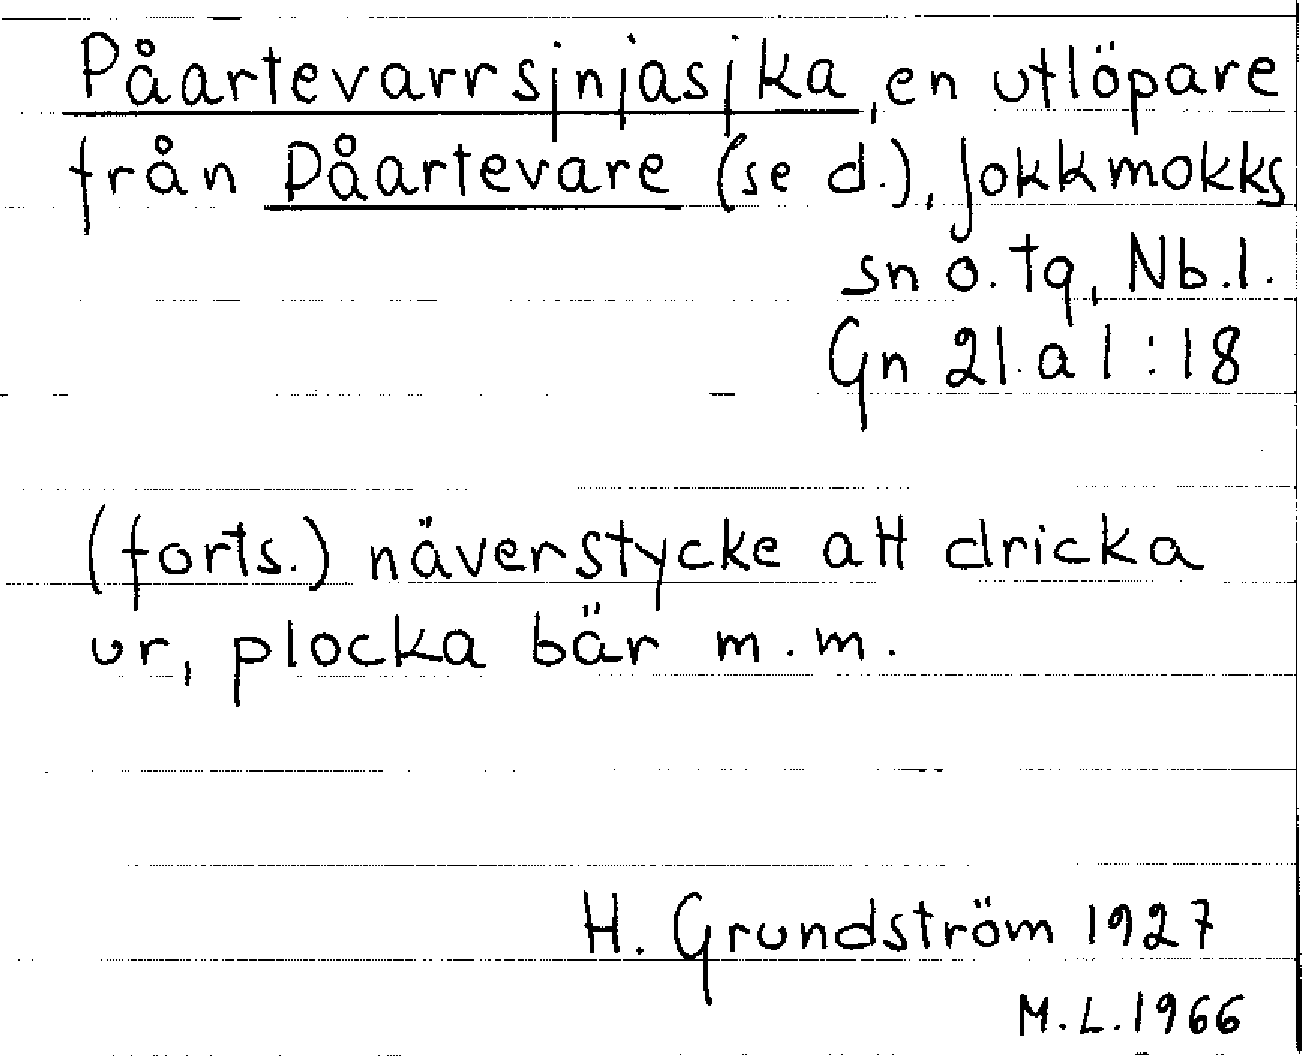 Påartevarrsjnjasjka, en utlöpare
från Påartevare (se d.), Jokkmokks
sn o. tg, Nb.l.
Gn 21 a 1:18
(forts.) näverstycke att dricka
ur, plocka bär m.m.
H. Grundström 1927
M.L. 1966